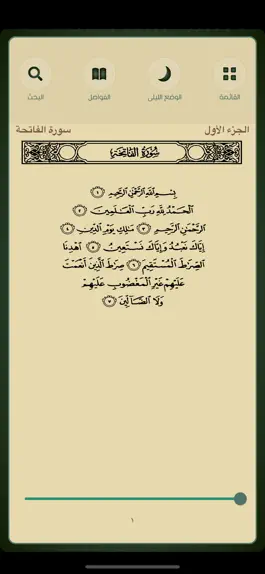 القائمة الوضع الليلي الفواصل البحث
الجزء الأول سورة الفاتحة
سورة الفاتحة
بسم الله الرحمن الرحيم ١
الحمد لله رب العالمين ٢
الرحمن الرحيم ٣ ملك يوم الدين ٤
إياك نعبد وإياك نستعين ٥ اهدنا
الصرط المستقيم ٦ صرط الذين أنعمت
عليهم غير المغضوب عليهم
ولا الضالين ٧
١